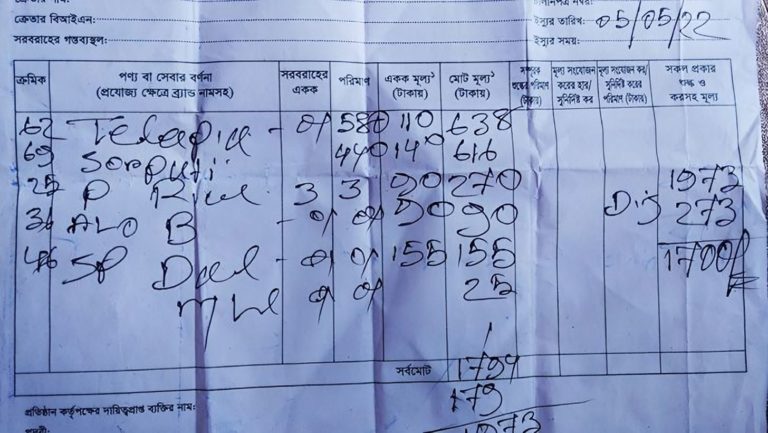 ক্রেতার বিআইএন:
সরবরাহের গন্তব্যস্থল:
ইস্যুর তারিখ: 05/05/22
ইস্যুর সময়:
ক্রমিক পণ্য বা সেবার বর্ণনা (প্রযোজ্য ক্ষেত্রে ব্র্যান্ড নামসহ) সরবরাহের একক পরিমাণ একক মূল্য¹ (টাকায়) মোট মূল্য¹ (টাকায়) সম্পূরক শুল্কের পরিমাণ (টাকায়) মূল্য সংযোজন করের হার/ সুনির্দিষ্ট কর মূল্য সংযোজন কর/ সুনির্দিষ্ট করের পরিমাণ (টাকায়) সকল প্রকার শুল্ক ও করসহ মূল্য
62 Telapia - 580 110 638
63 Sorputi 440 140 616
P Rice 3 3 90 270 1973
Alo B - 90 90 Dis 273
SP Dal - 155 155 1700/-
25
সর্বমোট 1794
179
1973
প্রতিষ্ঠান কর্তৃপক্ষের দায়িত্বপ্রাপ্ত ব্যক্তির নাম: